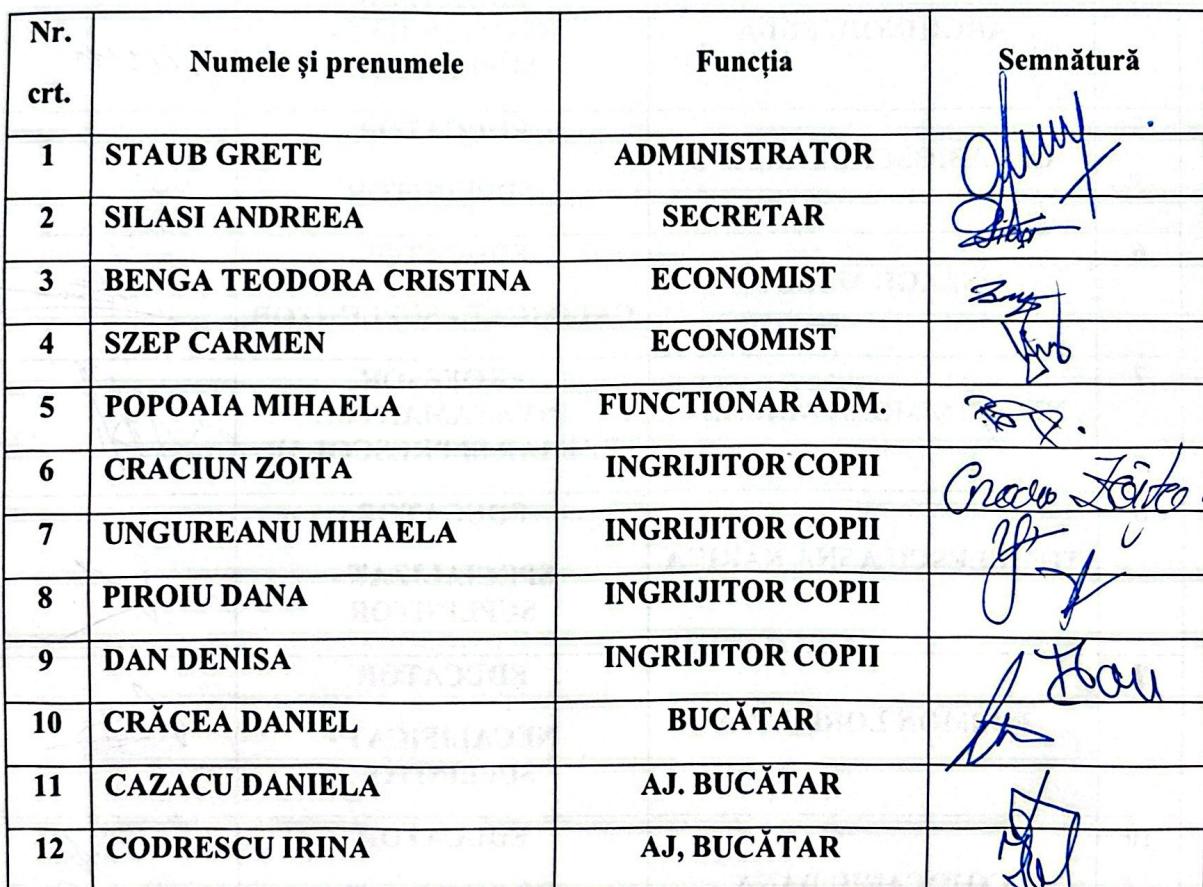 Nr. crt. Numele și prenumele Funcția Semnătură
1 STAUB GRETE ADMINISTRATOR
2 SILASI ANDREEA SECRETAR
3 BENGA TEODORA CRISTINA ECONOMIST
4 SZEP CARMEN ECONOMIST
5 POPOAIA MIHAELA FUNCTIONAR ADM.
6 CRACIUN ZOITA INGRIJITOR COPII
7 UNGUREANU MIHAELA INGRIJITOR COPII
8 PIROIU DANA INGRIJITOR COPII
9 DAN DENISA INGRIJITOR COPII
10 CRĂCEA DANIEL BUCĂTAR
11 CAZACU DANIELA AJ. BUCĂTAR
12 CODRESCU IRINA AJ, BUCĂTAR